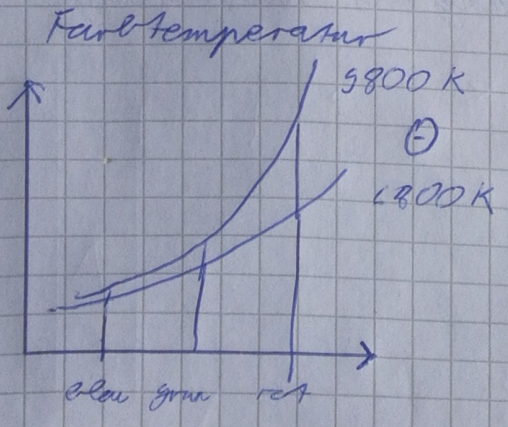 Farbtemperatur
9800 K
Θ
6800 K
blau grün rot